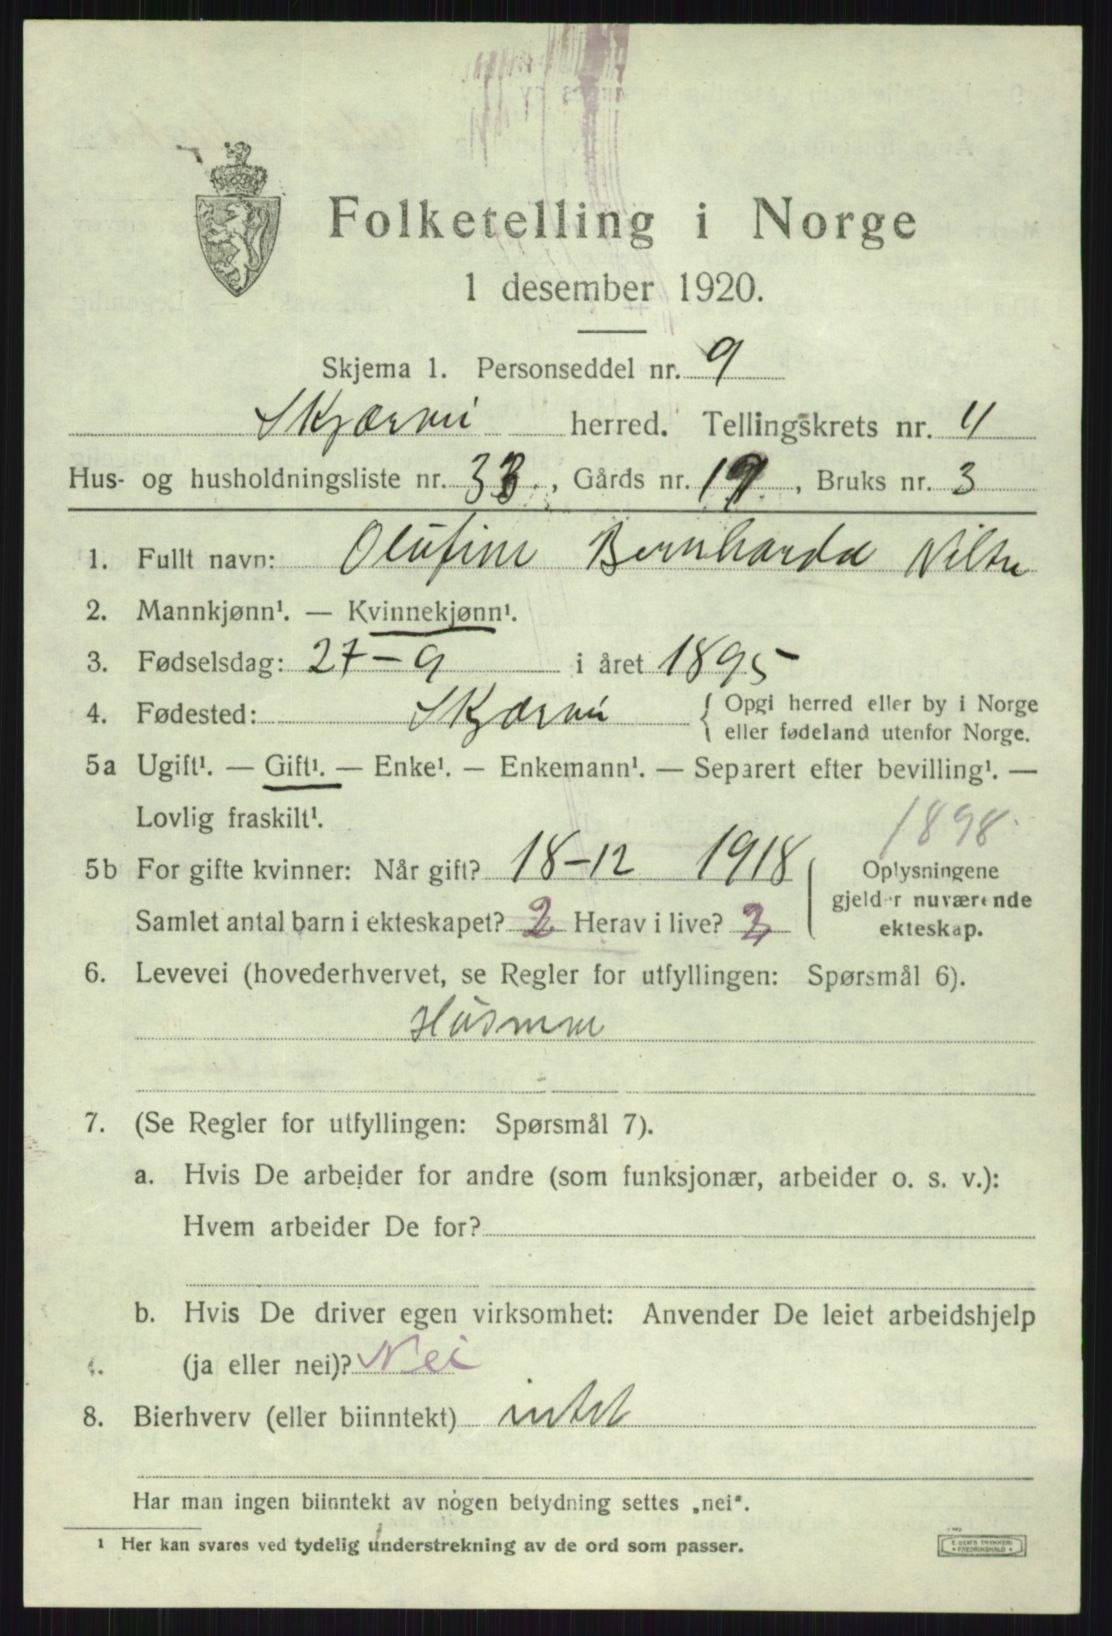 Folketelling i Norge
1 desember 1920.
Skjema 1. Personseddel nr. 9
Skjærvø herred. Tellingskrets nr. 4
Hus- og husholdningsliste nr. 33, Gårds nr. 19, Bruks nr. 3
1. Fullt navn: Olufine Bernharda
2. Mannkjønn¹. — Kvinnekjønn¹.
3. Fødselsdag: 27-9 i året 1895
4. Fødested: Skjærvø { Opgi herred eller by i Norge
eller fødeland utenfor Norge.
5a Ugift¹. — Gift¹. — Enke¹. — Enkemann¹. — Separert efter bevilling¹. —
Lovlig fraskilt¹.
1898
5b For gifte kvinner: Når gift? 18-12 1918 Oplysningene
Samlet antal barn i ekteskapet? 2 Herav i live? 2 gjelder nuværende
ekteskap.
6. Levevei (hovederhvervet, se Regler for utfyllingen: Spørsmål 6).
Husmor
7. (Se Regler for utfyllingen: Spørsmål 7).
a. Hvis De arbeider for andre (som funksjonær, arbeider o. s. v.):
Hvem arbeider De for?
b. Hvis De driver egen virksomhet: Anvender De leiet arbeidshjelp
(ja eller nei)? Nei
8. Bierhverv (eller biinntekt) intet
Har man ingen biinntekt av nogen betydning settes „nei“.
¹ Her kan svares ved tydelig understrekning av de ord som passer.